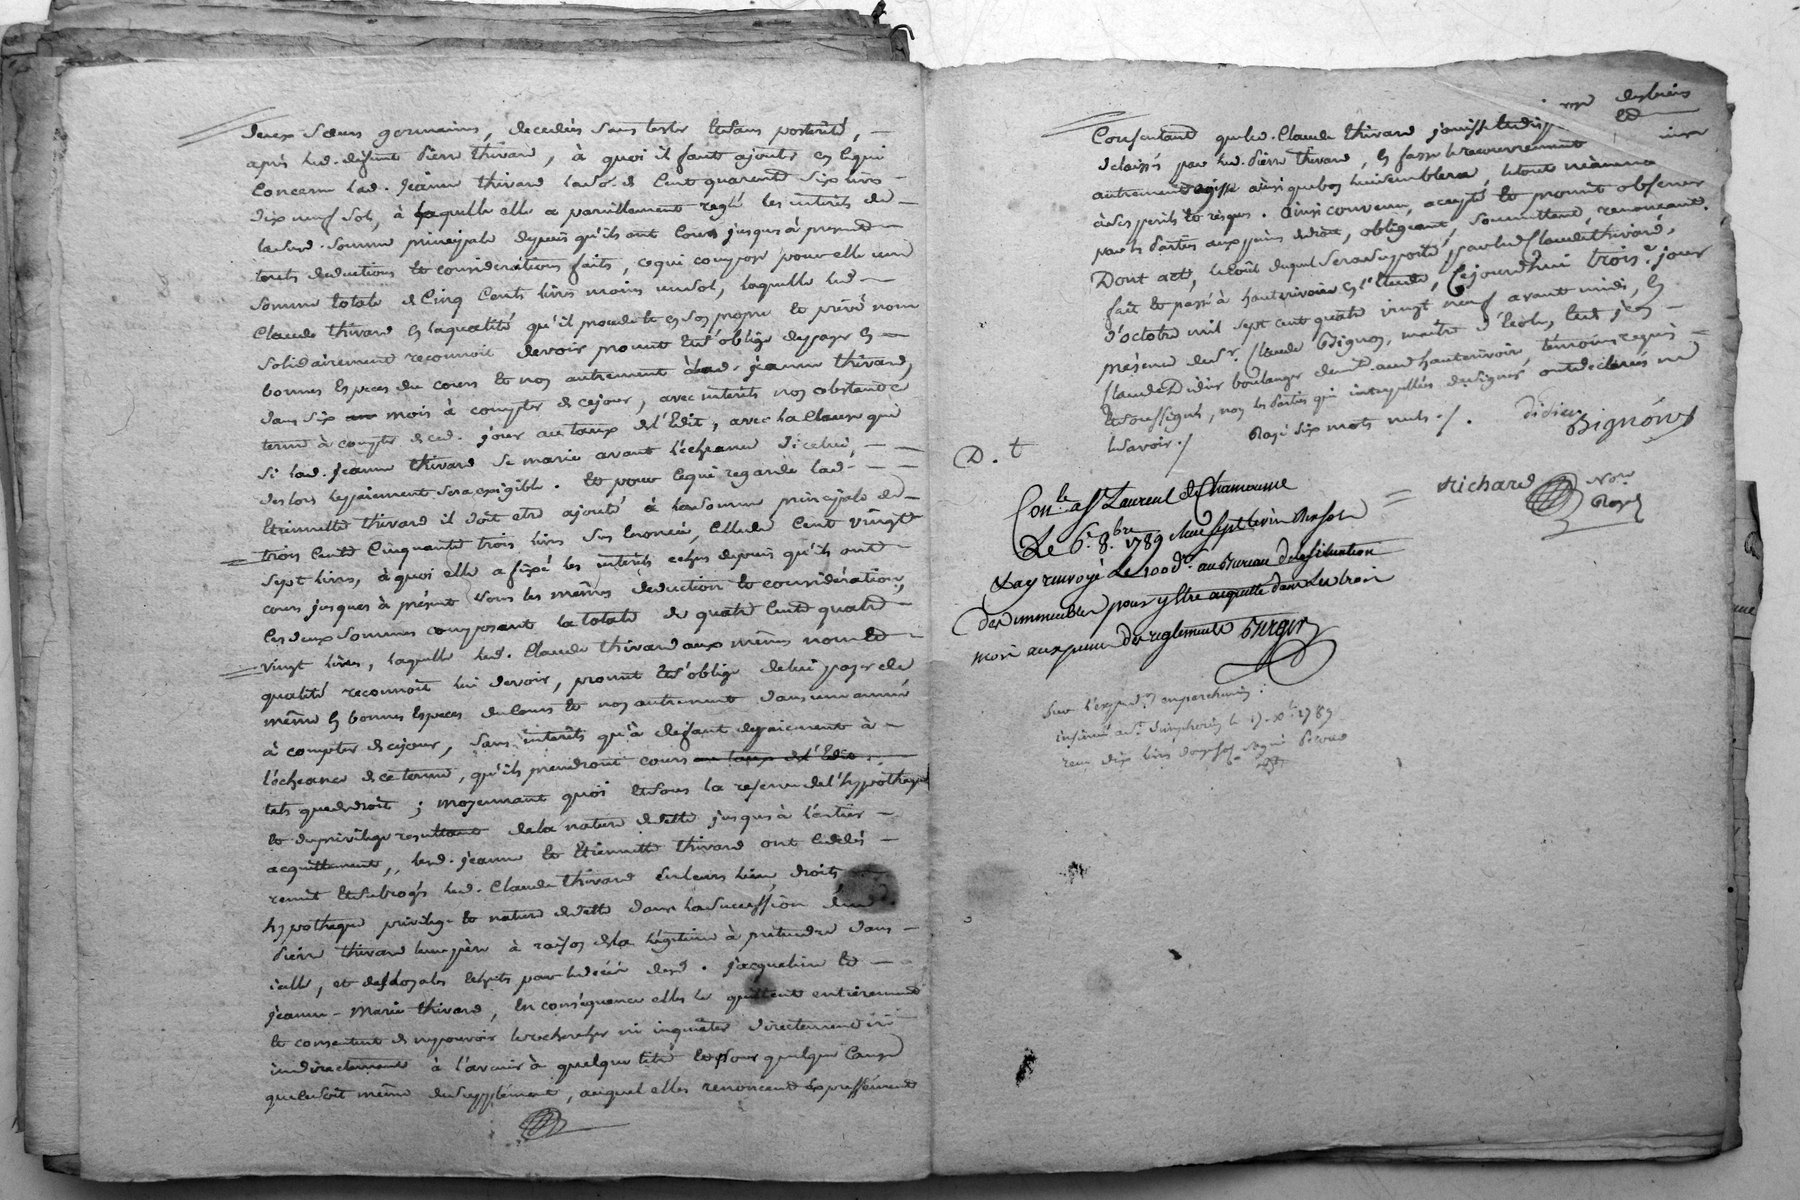 deux sœurs germaines, decedées sans tester et sans posterité,
après led. defunt Pierre thivard, à quoi il faut ajouter en ce qui
concerne lad. jeanne thivard la so. de cent quarente six livres
dix neuf sols, à laquelle elle a pareillement reglé les interets de
lad. somme principale depuis qu'ils ont cours jusques à present
toutes deductions et considerations faites, ce qui compose pour elle une
somme totale de cinq cents livres moins un sol, laquelle led.
Claude thivard en la qualité qu'il procede et en son propre et privé nom
solidairement reconnoit devoir promet et s'oblige de payer en
bonnes especes du cours et non autrement à lad. jeanne thivard,
dans six mois à compter de ce jour, avec interets nonobstant ce
terme à compter de ced. jour au taux de l'Edit, avec la clause que
si lad. jeanne thivard se marie avant l'échéance d'icelui,
des lors le paiement sera exigible. Et pour ce qui regarde lad.
Etiennette thivard il doit etre ajouté à la somme principale de
trois cents cinquante trois livres sus énoncée, celle de cent vingt
sept livres, à quoi elle a fixé les interets echus depuis qu'ils ont
cours jusques à présent sous les mêmes deduction et considération,
les deux sommes composant la totale de quatre cents quatre
vingt livres, laquelle led. Claude thivard aux mêmes nom et
qualité reconnoit lui devoir, promet et s'oblige de lui payer de
même en bonnes especes du cours et non autrement dans une année
à compter de ce jour, sans interêts qu'à defaut de paiement à
l'échéance de ce terme, qu'ils prendront cours au taux de l'Edit
tels que de droit ; moyennant quoi et sous la reserve de l'hypotheque
et du privilege resultant de la nature de dette jusques à l'entier
acquittement, lesd. jeanne et Etiennette thivard ont cedé,
remis et subrogé led. Claude thivard en leurs lieu, droits
hypotheque privilege et nature de dette dans la succession dud.
Pierre thivard leur père à raison de la légitime à prétendre dans
icelle, et des legs et laissés par le décès desd. jacqueline et
jeanne-Marie thivard, en conséquence elles le quittent entièrement
et consentent de ne pouvoir le rechercher ni inquiéter directement ni
indirectement à l'avenir à quelque titre et pour quelque cause
que ce soit même de supplément, auquel elles renoncent expressément
consentant que led. Claude thivard jouisse et des biens
delaissés par led. Pierre thivard, en fasse le recouvrement et
autrement agisse ainsi que bon lui semblera, le tout néanmoins
à ses perils et risques. Ainsi convenu, accepté et promit observer
par les Parties aux peines de droit, obligeant, soumettant, renonceant.
Dont acte, le coût duquel sera suporté par led. Claude thivard,
fait et passé à hauterivoire en l'etude, Cejourd'hui trois.e jour
d'octobre mil sept cent quatre vingt neuf avant midi, en
présence de Sr. Claude Bignon, maitre d'école, et de
Claude Didier boulanger demt. aud. hauterivoire, témoins requis
et soussignés, non les Parties qui interpellées de signer ont déclaré ne
le savoir./. Rayé six mots nuls./.
didier
Bignon
D. t
richard Nre.
Royal
Conlé. a St Laurent de Chamousset
Le 6. 8.bre 1789
Lay renvoyé Le 100 d. au Bureau de la situation
des immeubles pour y Etre acquitté dans les trois
mois aux peines des reglements Burgin
Sur l'expedon. en parchemin :
insinué a St. Simphorien le 17. Xbre 1789
reçu dix livres signé